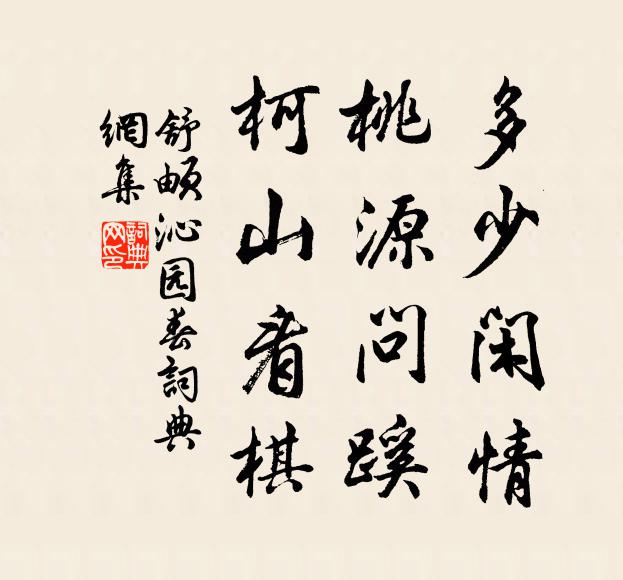 多少閑情
桃源問蹊
柯山看棋
舒頔沁园春詞典
網集
詞典
网印